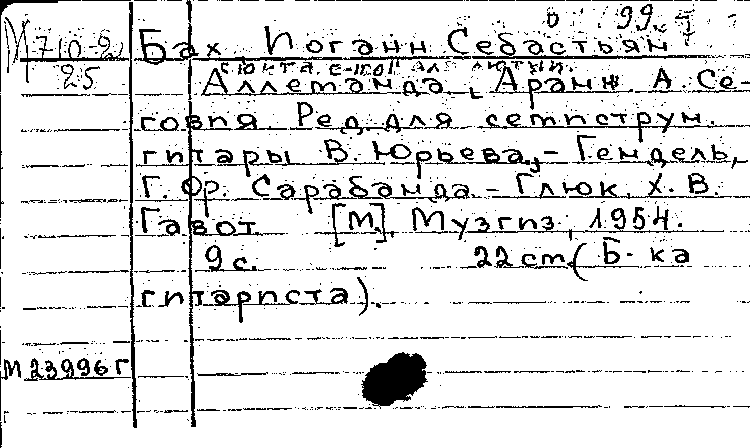 99.
М 710-2
25
Бах Иоганн Себастьян
[сюита e-moll для лютни.
Аллеманда. [Аранж. А. Се-
говия. Ред. для семиструн.
гитары В. Юрьева,- Гендель,
Г. Фр. Сарабанда. - Глюк. Х. В.
Гавот [М.], Музгиз, 1954.
9 с. 22 cm. (Б-ка
гитариста).
М 23996 Г